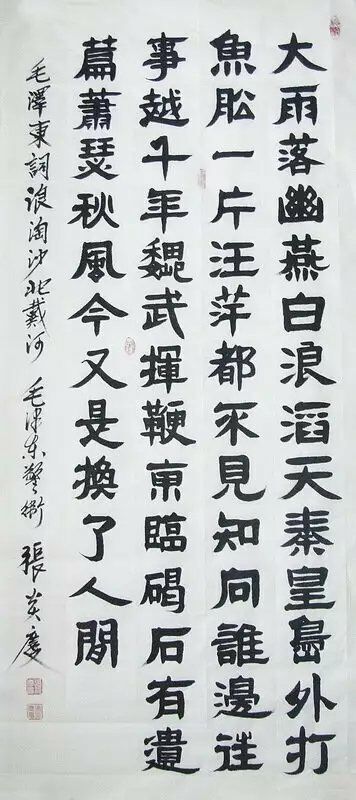 大雨落幽燕白浪滔天秦皇島外打
魚舩一片汪洋都不見知向誰邊往
事越千年魏武揮鞭東臨碣石有遺
篇蕭瑟秋風今又是換了人間
毛澤東詞浪淘沙北戴河 毛澤東警衛 張炎慶